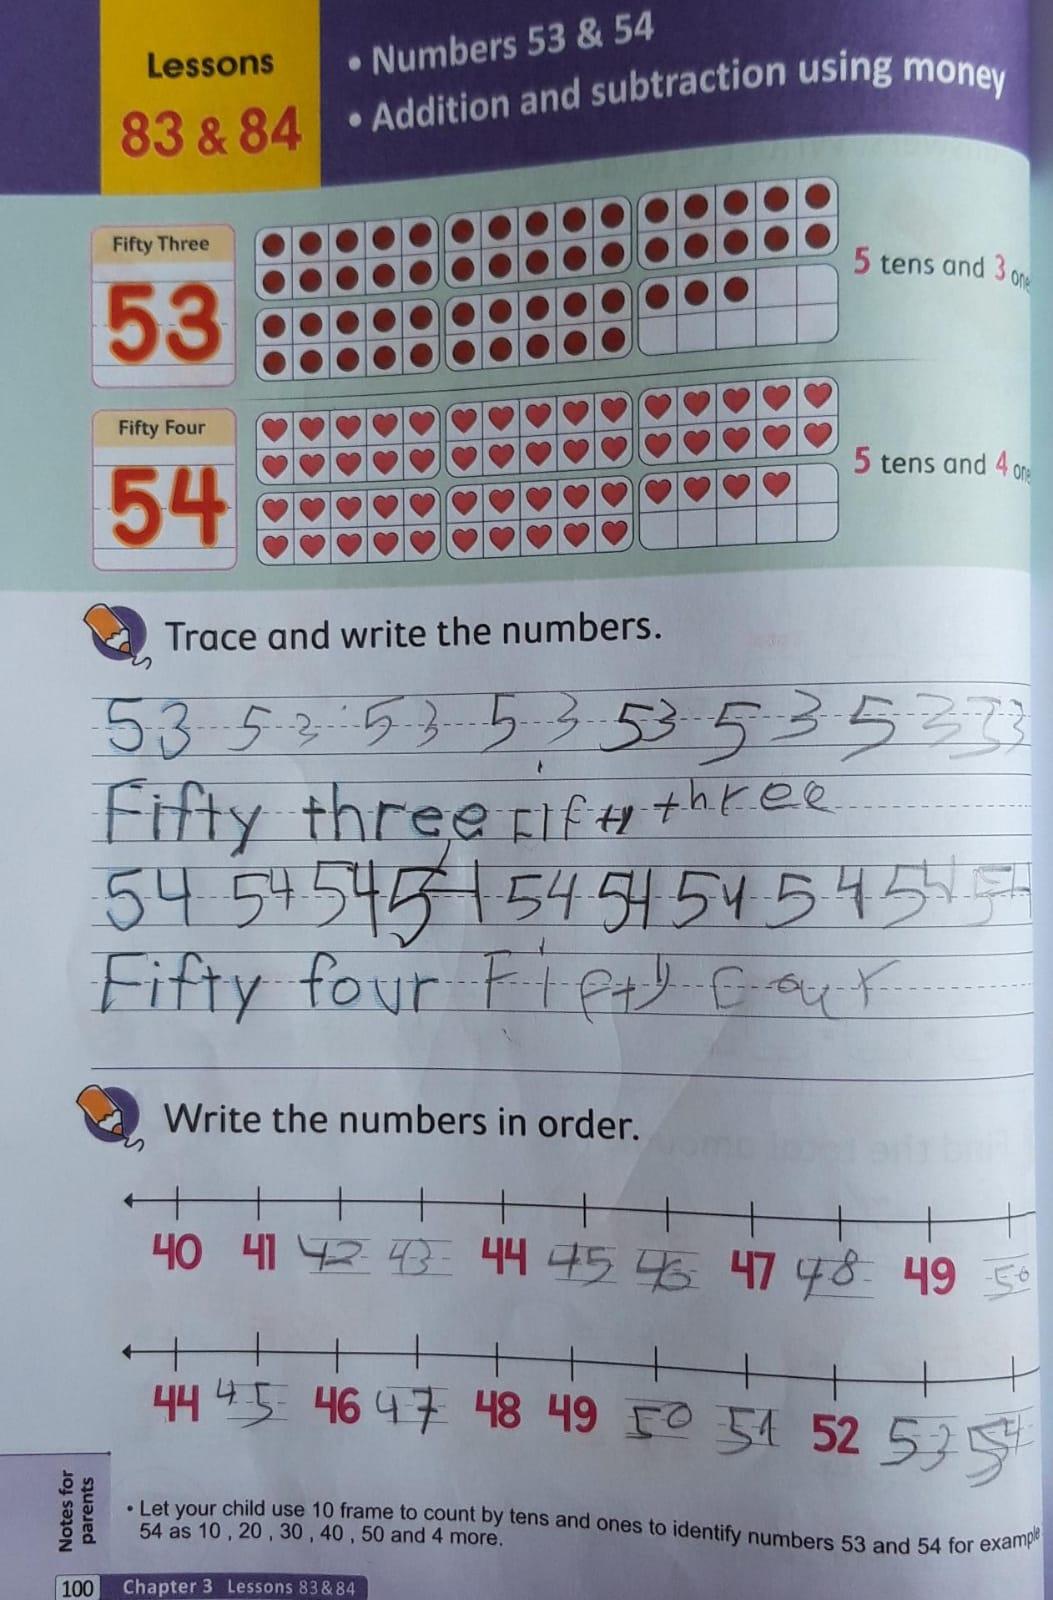 Lessons
83 & 84
• Numbers 53 & 54
• Addition and subtraction using money
Fifty Three
53
5 tens and 3 one
Fifty Four
54
5 tens and 4 one
Trace and write the numbers.
53 53 53 53 53 53 53 33
Fifty three Fifty three
54 54 54 54 54 54 54 54 54 54
Fifty four Fifty four
Write the numbers in order.
40 41 42 43 44 45 46 47 48 49 50
44 45 46 47 48 49 50 51 52 53 54
Notes for parents
• Let your child use 10 frame to count by tens and ones to identify numbers 53 and 54 for example
54 as 10 , 20 , 30 , 40 , 50 and 4 more.
100 Chapter 3 Lessons 83&84